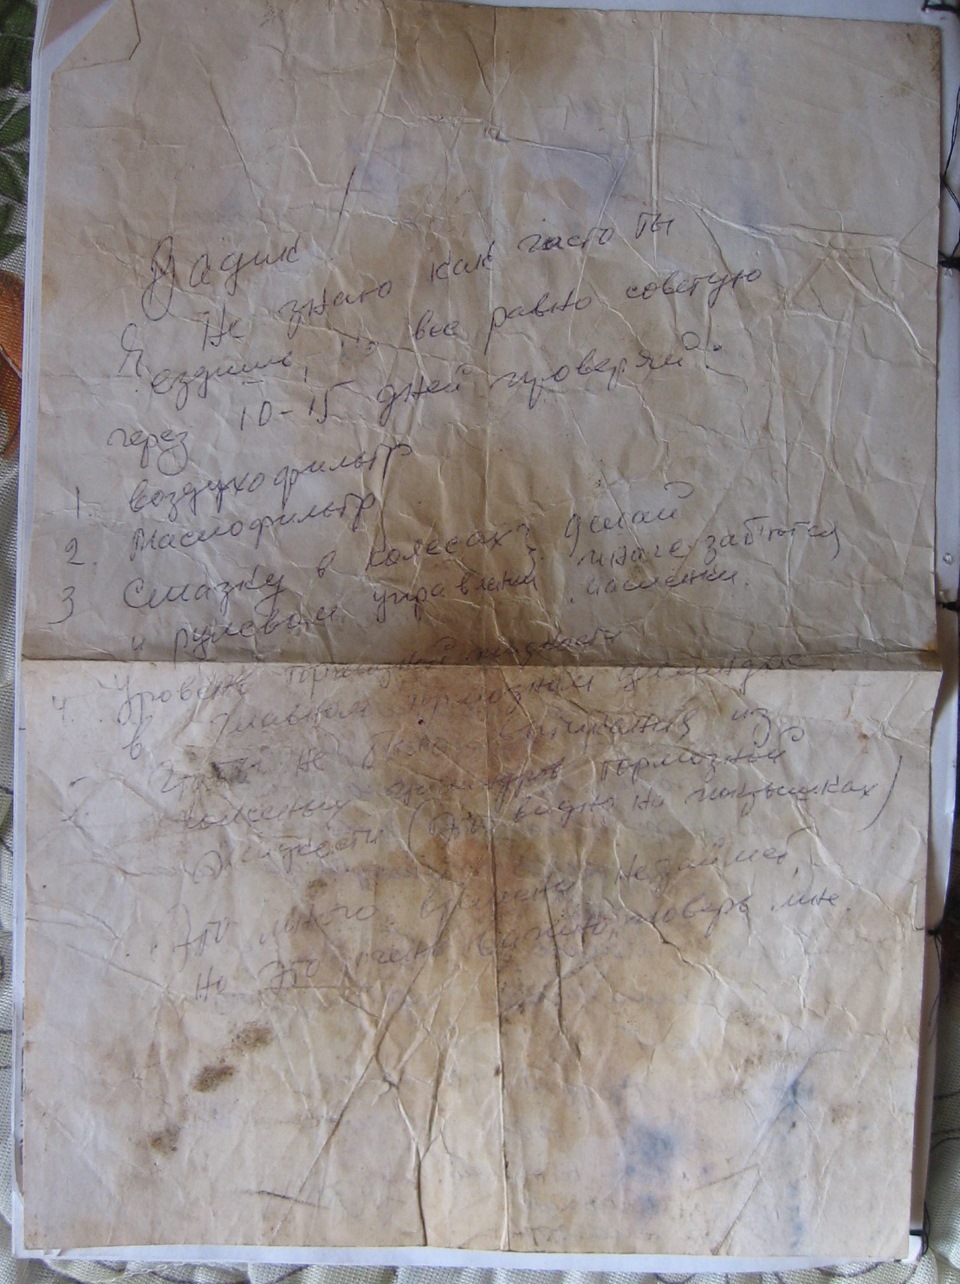 Вадик!
Я не знаю как часто ты
ездишь, но все равно советую
через 10-15 дней проверяй:
1. воздухофильтр
2. Маслофильтр
3 Смазку в колесах; делай
и рулевом управлении. иначе забьются
масленки.
4. Уровень тормозной жидкости
в главном тормозном цилиндре.
чтобы не было из
цилиндров тормозной
жидкости (это видно на покрышках)
Это много времени не займет,
но это очень важно, поверь мне.